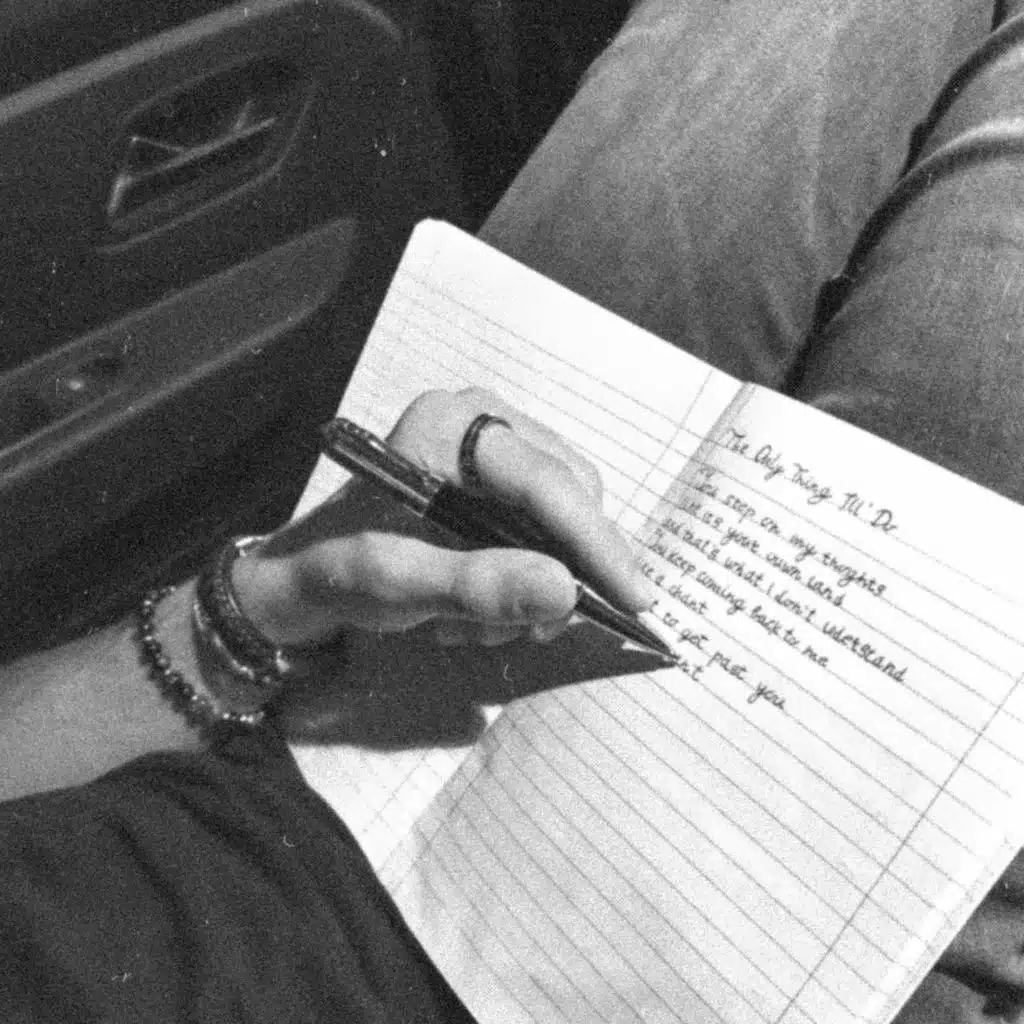 The Only Thing I'll Do
step on my thoughts
your own land
that's what I don't udetstand
keep coming back to me
a chant
to get past you